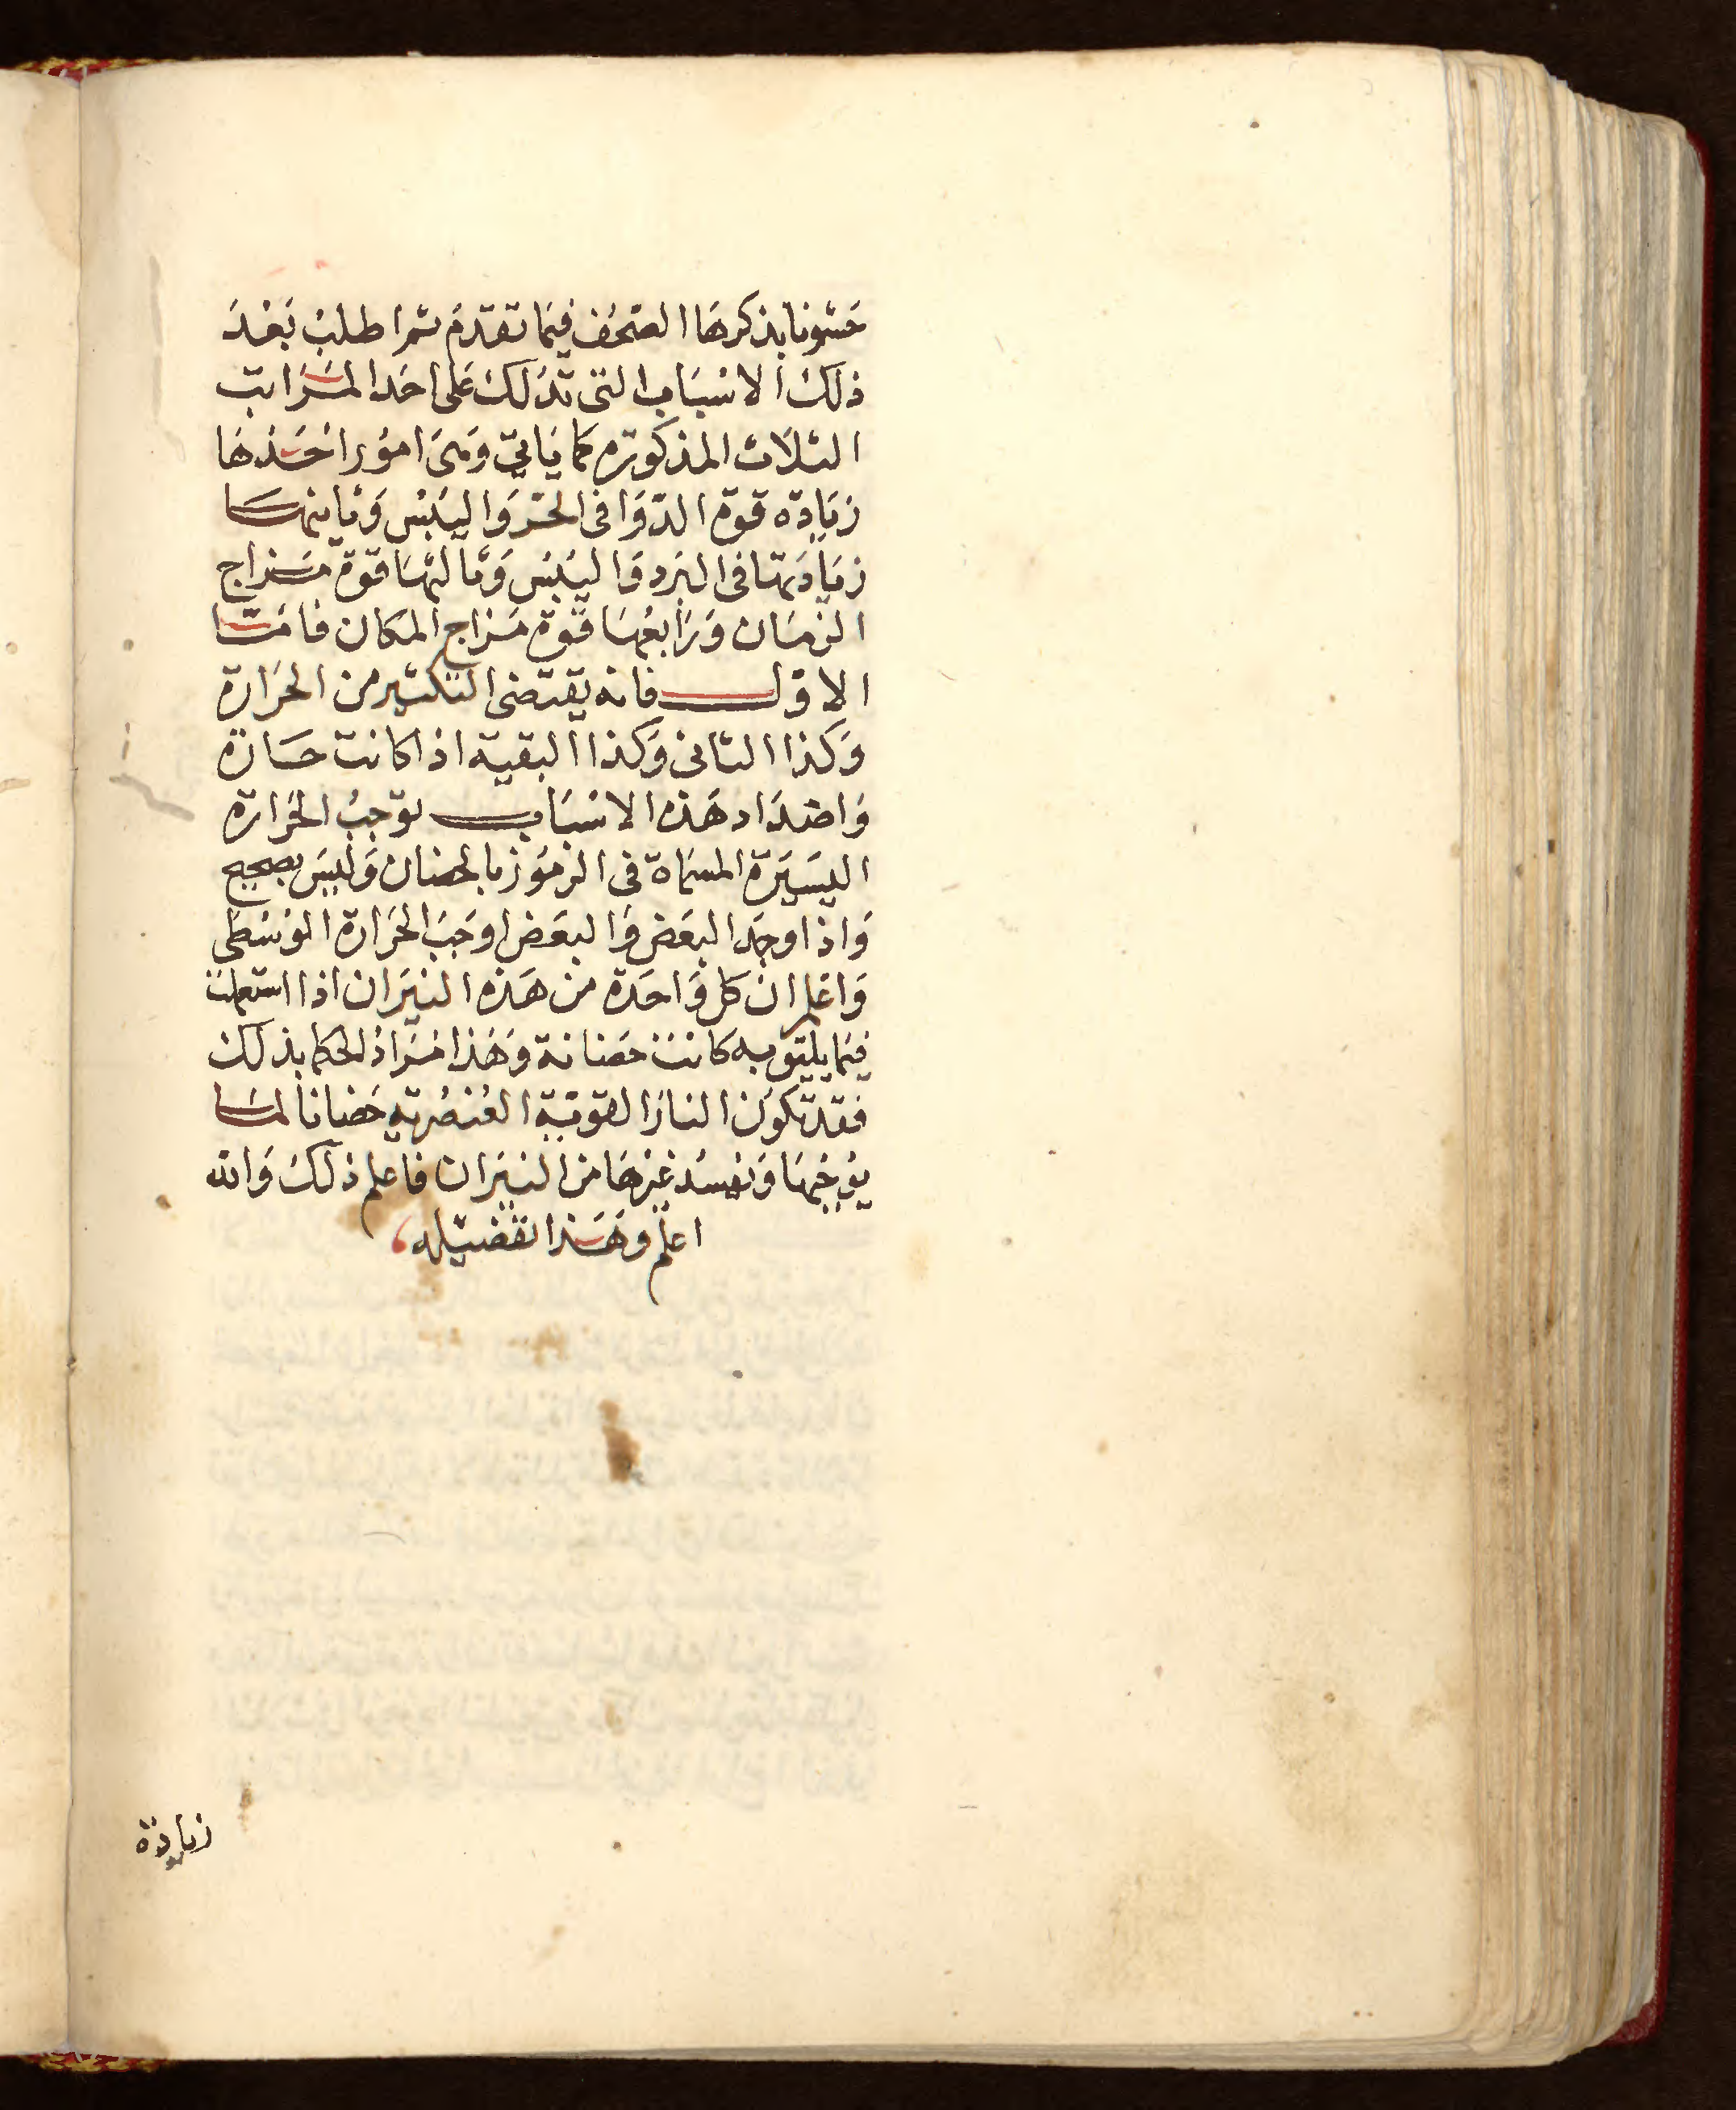 حشونا بذكرها الصحف فيما تقدم ثم اطلب بعد
ذلك الاسباب التى تدلك على احد المراتب
الثلاث المذكورة كما ياتى وهى امور احدها
زيادة قوة الدوا فى الحر واليبس وثانيها
زيادتها فى البرد واليبس وثالثها قوة مزاج
الزمان ورابعها قوة مزاج المكان فاما
الاول فانه يقتضى التكثير من الحرارة
وكذا الثانى وكذا البقية اذا كانت حارة
واضداد هذه الاسباب توجب الحرارة
اليسيرة المسماة فى الرموز بالحضان وليس بصحيح
واذا وجد البعض والبعض اوجب الحرارة الوسطى
واعلم ان كل واحدة من هذه النيران اذا استعملت
فيما يليق به كانت حضانة وهذا مراد الحكما بذلك
فقد تكون النار القوية العنصرية حضانا لما
يوجبها ويفسد غيرها من النيران فاعلم ذلك والله
اعلم وهذا تفصيله
زيادة